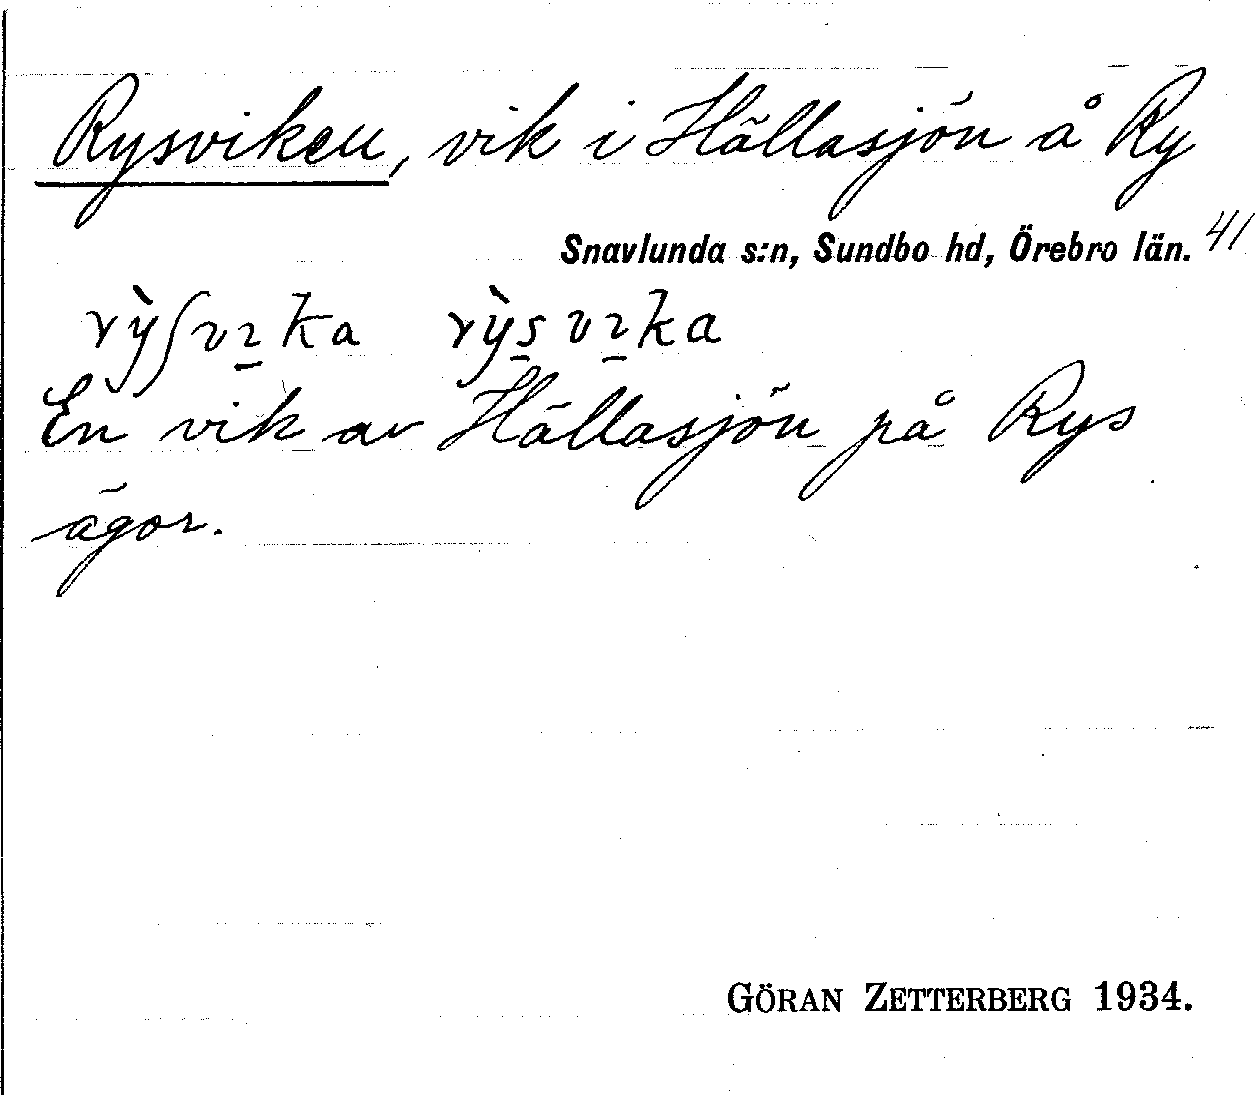 Rysviken, vik i Hällasjön å Ry
Snavlunda s:n, Sundbo hd, Örebro län. 41
rỳʃvıka rỳsvıka
En vik av Hällasjön på Rys
ägor.
GÖRAN ZETTERBERG 1934.